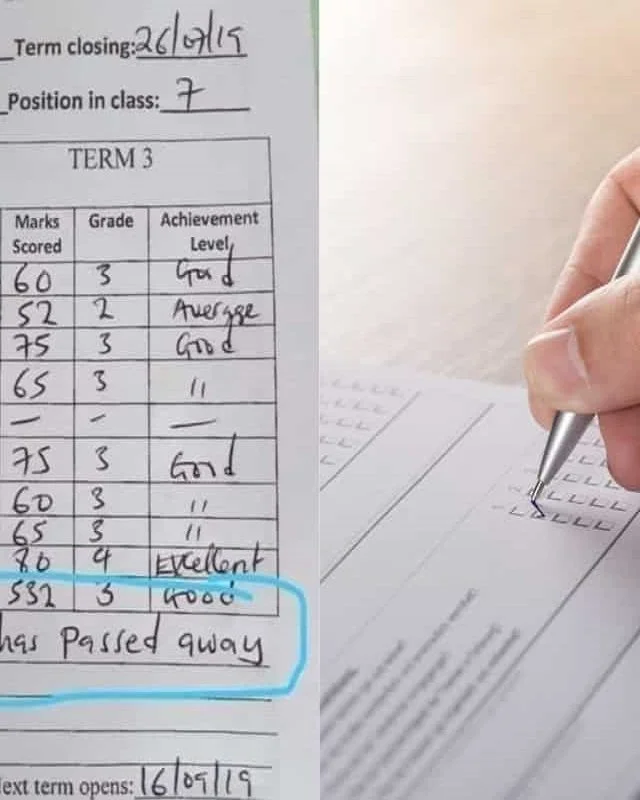 Term closing: 26/07/19
Position in class: 7
TERM 3
Marks Scored Grade Achievement Level
60 3 Good
52 2 Average
75 3 Good
65 3 "
— – —
75 3 Good
60 3 "
65 3 "
80 4 Excellent
532 3 Good
has passed away
ext term opens: 16/09/19